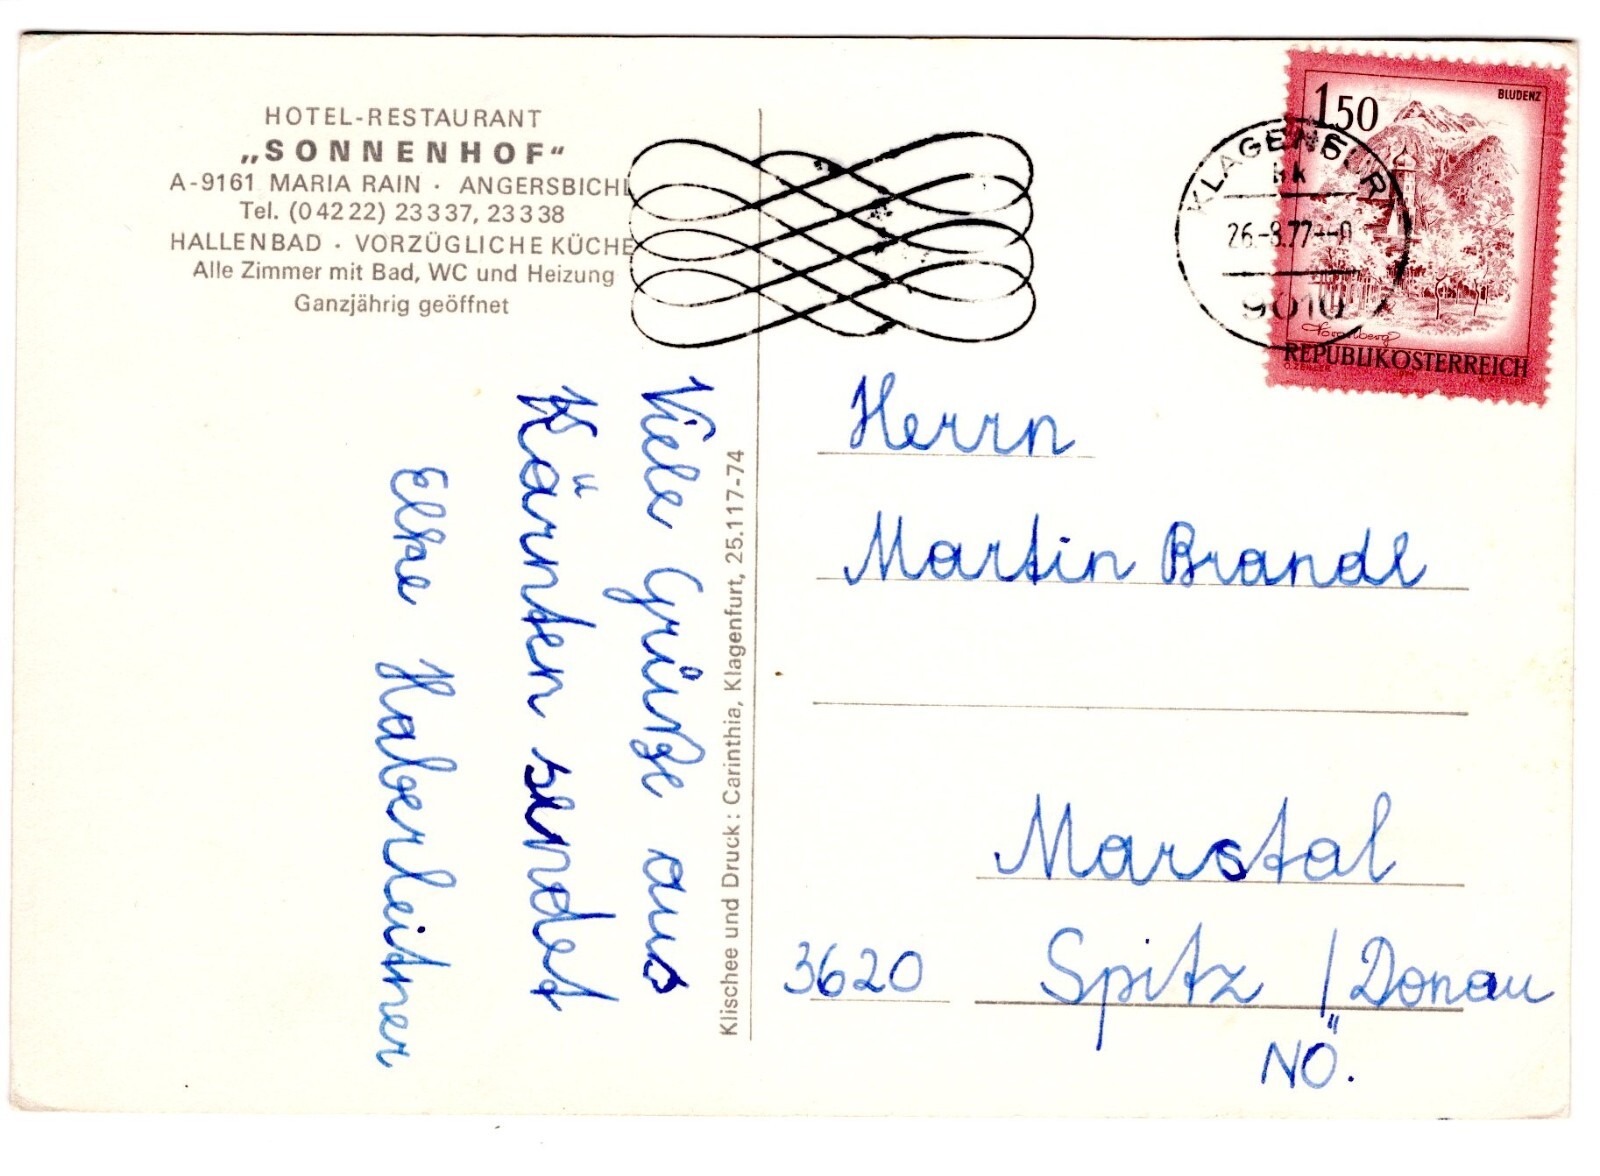 HOTEL-RESTAURANT
„SONNENHOF“
A-9161 MARIA RAIN · ANGERSBICHL
Tel. (04222) 23337, 23338
HALLENBAD · VORZÜGLICHE KÜCHE
Alle Zimmer mit Bad, WC und Heizung
Ganzjährig geöffnet
Viele Grüße aus
Kärnten sendet
Elke Haberleitner
Klischee und Druck: Carinthia, Klagenfurt, 25.117-74
1.50
BLUDENZ
Vorarlberg
REPUBLIK ÖSTERREICH
KLAGENFURT
26.-8.77
9010
Herrn
Martin Brandl
Marstal
3620 Spitz / Donau
NÖ.